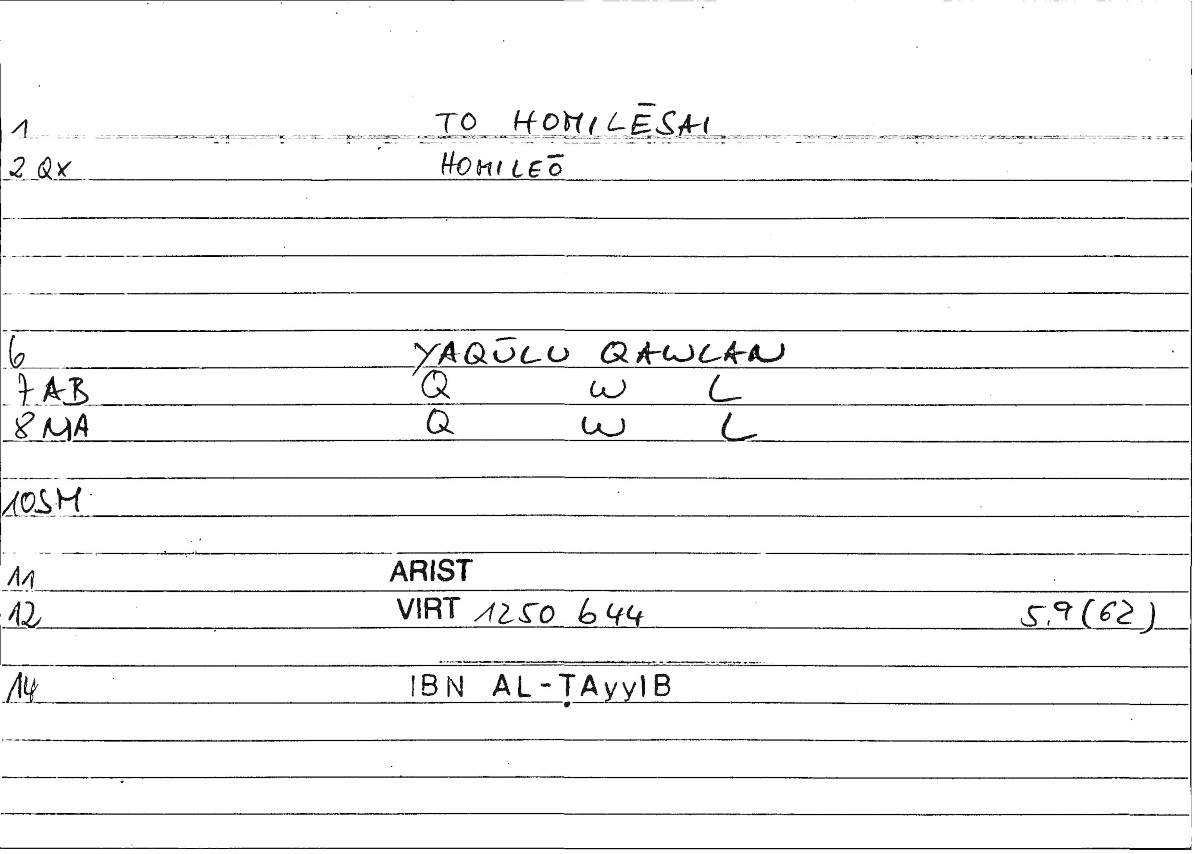 1 TO HOMILĒSAI
2 QX HOMILEŌ
6 YAQŪLU QAWLAN
7 AB Q W L
8 MA Q W L
10 SM
11 ARIST
12 VIRT 1250 b 44 5.9(62)
14 IBN AL-ṬAyyIB